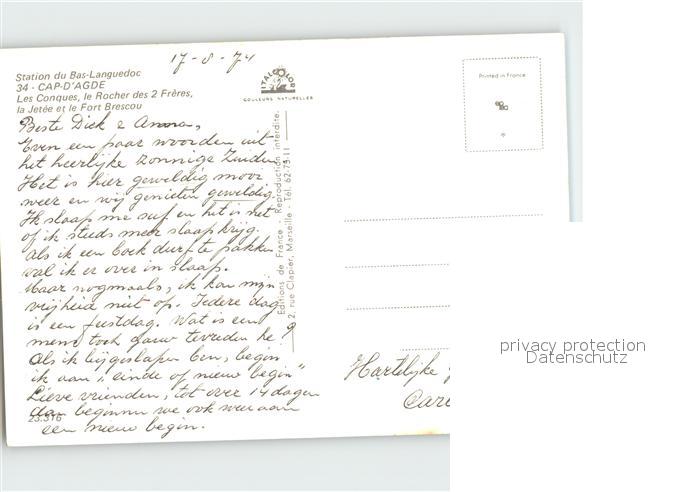 17-8-74
Station du Bas-Languedoc
34 - CAP-D'AGDE
Les Conques, le Rocher des 2 Frères,
la Jetée et le Fort Brescou
ITALCOLOR
COULEURS NATURELLES
Printed in France
Beste Dick & Anna,
Even een paar woorden uit
het heerlijke zonnige Zuiden
Het is hier geweldig mooi
weer en wij genieten geweldig
Ik slaap me suf en het is net
of ik steeds meer slaap krijg.
Als ik een boek durf te pakken
val ik er over in slaap.
Maar nogmaals, ik kan mijn
vrijheid niet op. Iedere dag
is een feestdag. Wat is een
mens toch gauw tevreden hè?
Als ik bijgeslapen ben, begin
ik aan "einde of nieuw begin"
Lieve vrienden, tot over 14 dagen
dan beginnen we ook weer aan
een nieuw begin.
23.316
Editions de France - Reproduction interdite.
2, rue Clapier, Marseille - Tél. 62-75-11
Hartelijke
privacy protection
Datenschutz